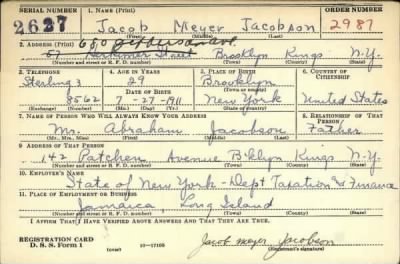 SERIAL NUMBER 1. NAME (Print) ORDER NUMBER
2627 Jacob Meyer Jacobson 2987
(First) (Middle) (Last)
2. ADDRESS (Print) 680 Jefferson Ave.
57 Herkimer Street Brooklyn Kings N.Y.
(Number and street or R. F. D. number) (Town) (County) (State)
3. TELEPHONE 4. AGE IN YEARS 5. PLACE OF BIRTH 6. COUNTRY OF CITIZENSHIP
Sterling 3 29 Brooklyn
DATE OF BIRTH (Town or county)
8562 7-27-1911 New York United States
(Exchange) (Number) (Mo.) (Day) (Yr.) (State or country)
7. NAME OF PERSON WHO WILL ALWAYS KNOW YOUR ADDRESS 8. RELATIONSHIP OF THAT PERSON
Mr. Abraham Jacobson Father
(Mr., Mrs., Miss) (First) (Middle) (Last)
9. ADDRESS OF THAT PERSON
142 Patchen Avenue B'klyn Kings N.Y.
(Number and street or R. F. D. number) (Town) (County) (State)
10. EMPLOYER'S NAME
State of New York - Dept Taxation & Finance
11. PLACE OF EMPLOYMENT OR BUSINESS
Jamaica, Long Island
(Number and street or R. F. D. number) (Town) (County) (State)
I AFFIRM THAT I HAVE VERIFIED ABOVE ANSWERS AND THAT THEY ARE TRUE.
REGISTRATION CARD
D. S. S. Form 1 (over) 16-17105 Jacob Meyer Jacobson
(Registrant's signature)